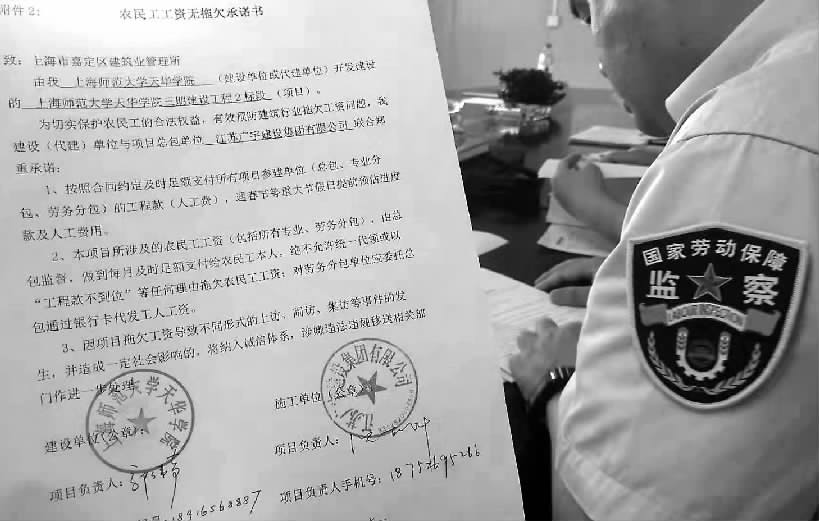 附件2:
农民工工资无拖欠承诺书
致：上海市嘉定区建筑业管理所
由我 上海师范大学天华学院 （建设单位或代建单位）开发建设
的 上海师范大学天华学院三期建设工程2标段 （项目）。
为切实保护农民工的合法权益，有效预防建筑行业拖欠工资问题，我
建设（代建）单位与项目总包单位 江苏广宇建设集团有限公司 联合郑
重承诺：
1、按照合同约定及时足额支付所有项目参建单位（总包、专业分
包、劳务分包）的工程款（人工费），遇春节等重大节假日提前预估进度
款及人工费用。
2、本项目所涉及的农民工工资（包括所有专业、劳务分包），由总
包监督，做到每月及时足额支付给农民工本人，绝不允许统一代领或以
“工程款不到位”等任何理由拖欠农民工工资；对劳务分包单位应委托总
包通过银行卡代发工人工资。
3、因项目拖欠工资导致不同形式的上访、闹访、集访等事件的发
生，并造成一定社会影响的，将纳入诚信体系，涉嫌违法违规移送相关部
门作进一步处理。
建设单位（公章）：
施工单位（公章）
上海师范大学天华学院
建设集团有限公司
江苏
项目负责人：
项目负责人：
项目负责人手机号：18752695286
18916568887
国家劳动保障
监察
LABOUR INSPECTION